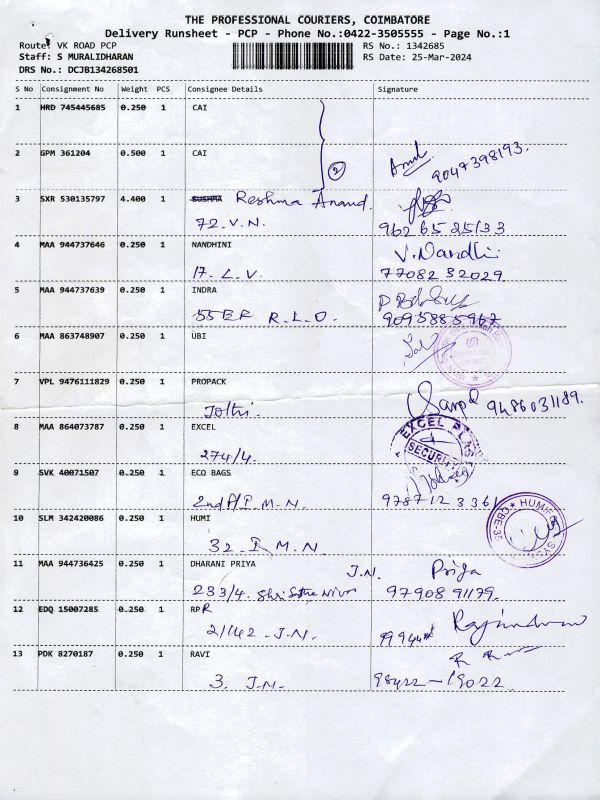 THE PROFESSIONAL COURIERS, COIMBATORE
Delivery Runsheet - PCP - Phone No.:0422-3505555 - Page No.:1
Route: VK ROAD PCP
RS No.: 1342685
Staff: S MURALIDHARAN
RS Date: 25-Mar-2024
DRS No.: DCJB134268501
S No Consignment No Weight PCS Consignee Details Signature
1 HRD 745445685 0.250 1 CAI
2 GPM 361204 0.500 1 CAI
2
9047398193.
3 SXR 530135797 4.400 1 SUSHMA Reshma Anand.
72. V.N.
9626525133
4 MAA 944737646 0.250 1 NANDHINI V. Nandhi
17. L.V. 77082 32029
5 MAA 944737639 0.250 1 INDRA
55 EF R.L.O. 9095885967
6 MAA 863748907 0.250 1 UBI
7 VPL 9476111829 0.250 1 PROPACK
Jothi. 9486031189.
8 MAA 864073787 0.250 1 EXCEL
274/4.
EXCEL
SECURITY
9 SVK 40071507 0.250 1 ECO BAGS
2nd P/I.M.N. 978712 3361
10 SLM 342420086 0.250 1 HUMI
32. I M.N.
HUMI
CBE-35
11 MAA 944736425 0.250 1 DHARANI PRIYA J.N. Priya
233/4. Shri 97908 91179.
12 EDQ 15007285 0.250 1 RPR
2/142 - J.N. 99944
13 PDK 8270187 0.250 1 RAVI
3. J.N. 98422-19022